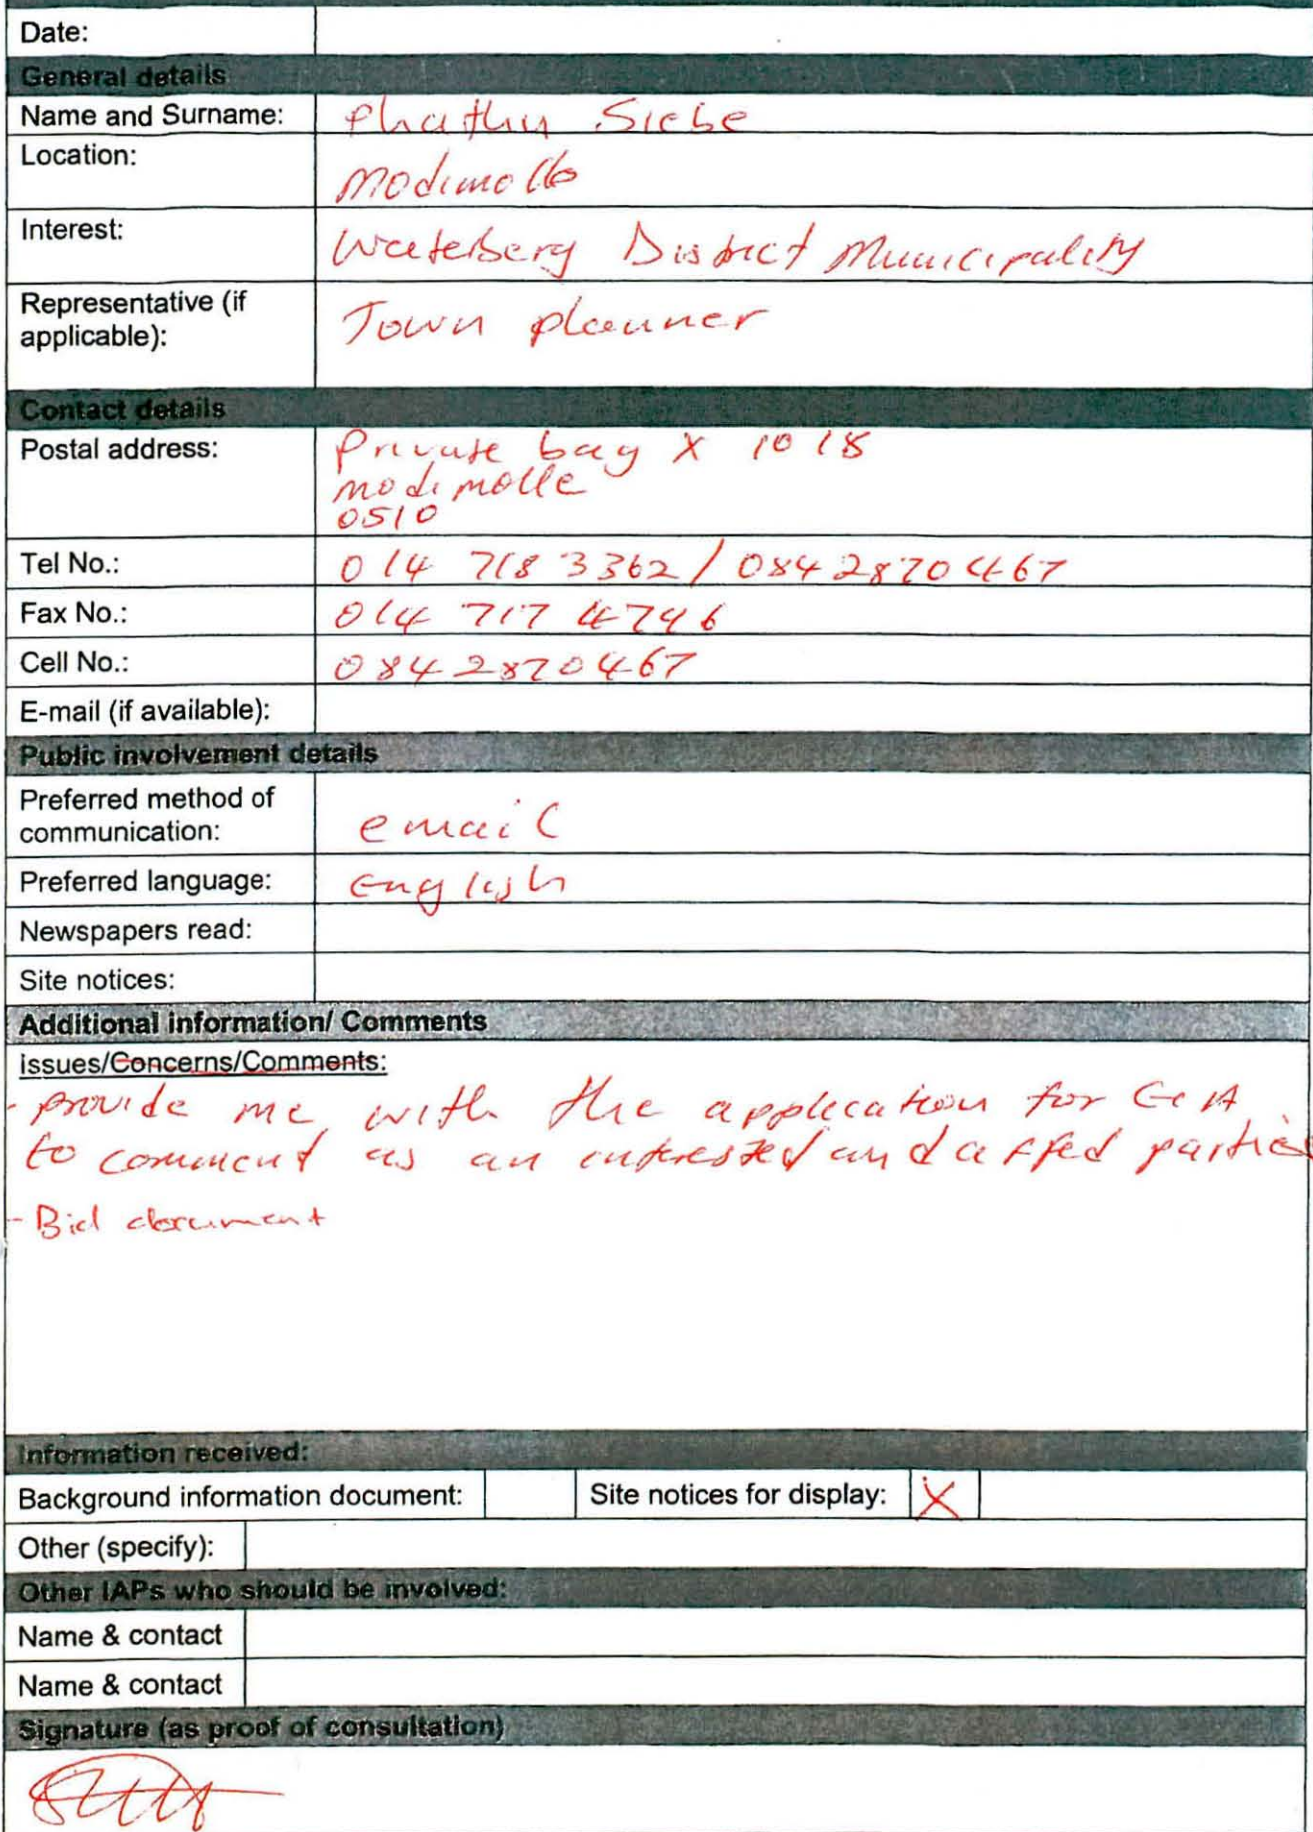 Date:
General details
Name and Surname: Phathu Siebe
Location: Modimolle
Interest: Waterberg District Municipality
Representative (if
applicable): Town planner
Contact details
Postal address: Private bag X 1018
modimolle
0510
Tel No.: 014 718 3362 / 0842870467
Fax No.: 014 717 4796
Cell No.: 0842870467
E-mail (if available):
Public involvement details
Preferred method of
communication: email
Preferred language: English
Newspapers read:
Site notices:
Additional information/ Comments
Issues/Concerns/Comments:
- provide me with the application for
to comment as an interested and affed parties
- Bid document
Information received:
Background information document: Site notices for display: X
Other (specify):
Other IAPs who should be involved:
Name & contact
Name & contact
Signature (as proof of consultation)